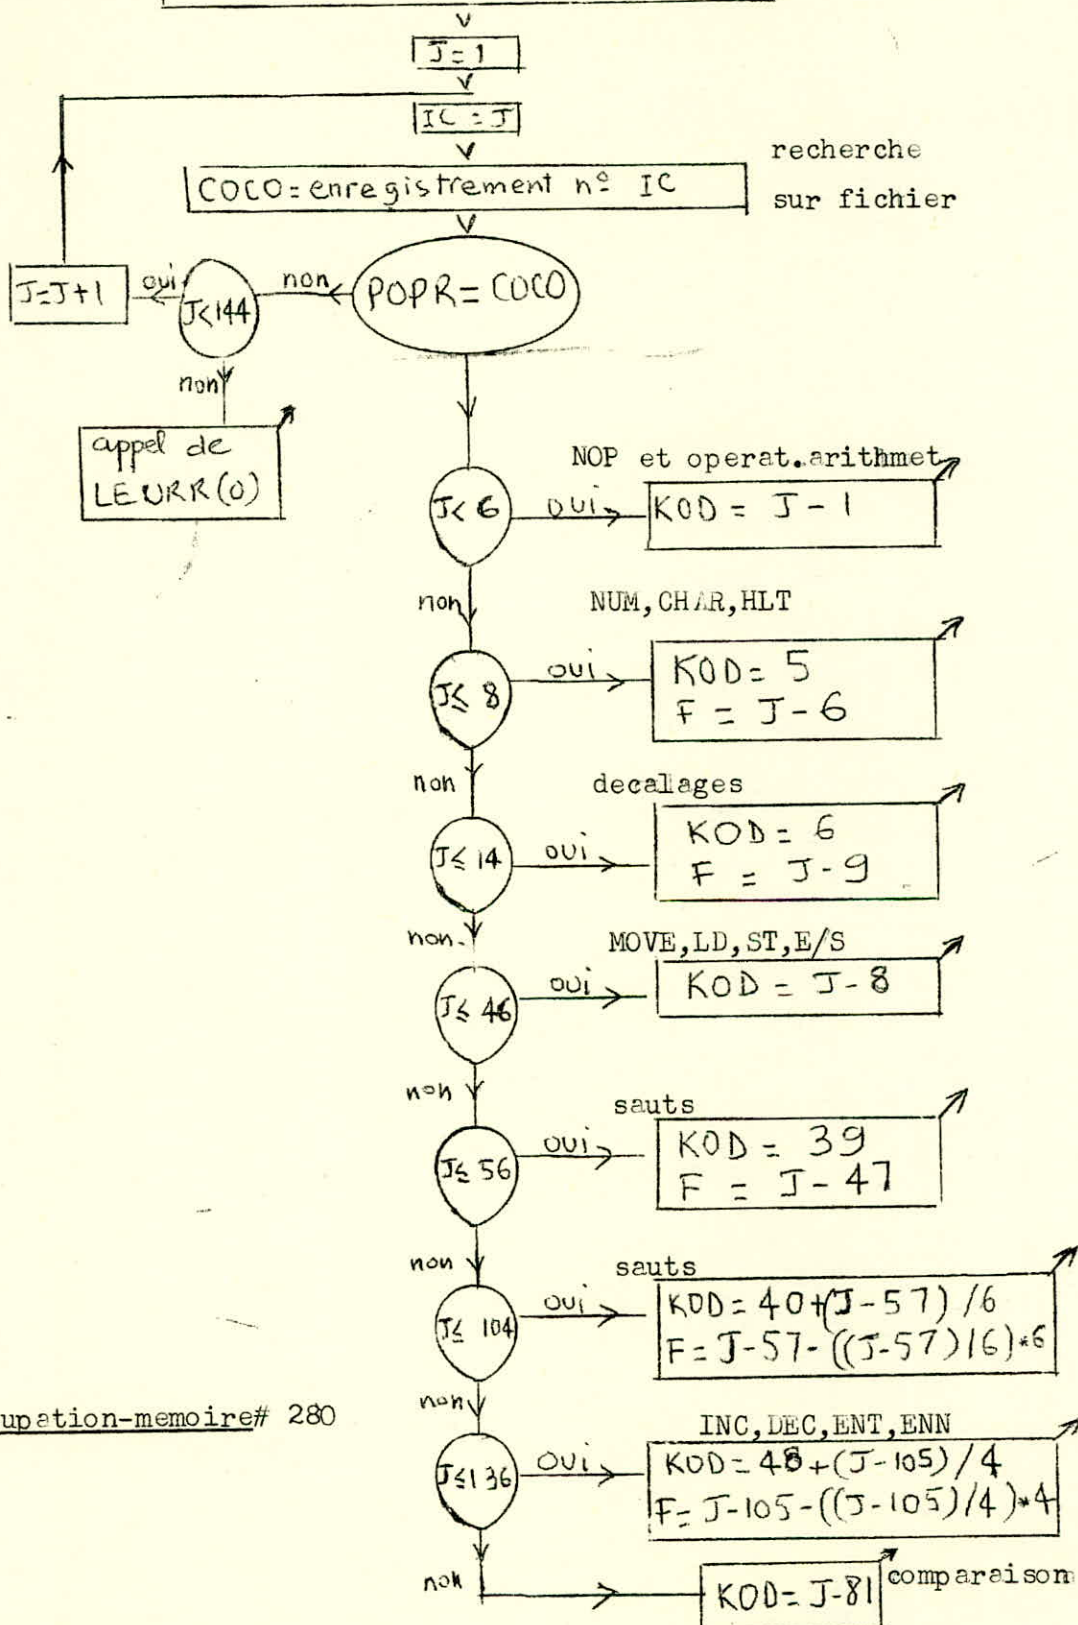 J=1
IC=J
recherche
COCO=enregistrement nº IC
sur fichier
POPR=COCO
non
J<144
oui
J=J+1
non
appel de
LEURR(0)
NOP et operat.arithmet
J<6
oui
KOD = J-1
non
NUM,CHAR,HLT
J≤ 8
oui
KOD= 5
F = J-6
non
decalages
J≤ 14
oui
KOD= 6
F = J-9
non
MOVE,LD,ST,E/S
J≤ 46
oui
KOD = J-8
non
sauts
J≤ 56
oui
KOD = 39
F = J-47
non
sauts
J≤ 104
oui
KOD=40+(J-57)/6
F=J-57-((J-57)/6)*6
upation-memoire# 280
non
INC,DEC,ENT,ENN
J≤136
oui
KOD=48+(J-105)/4
F=J-105-((J-105)/4)*4
non
KOD=J-81
comparaison